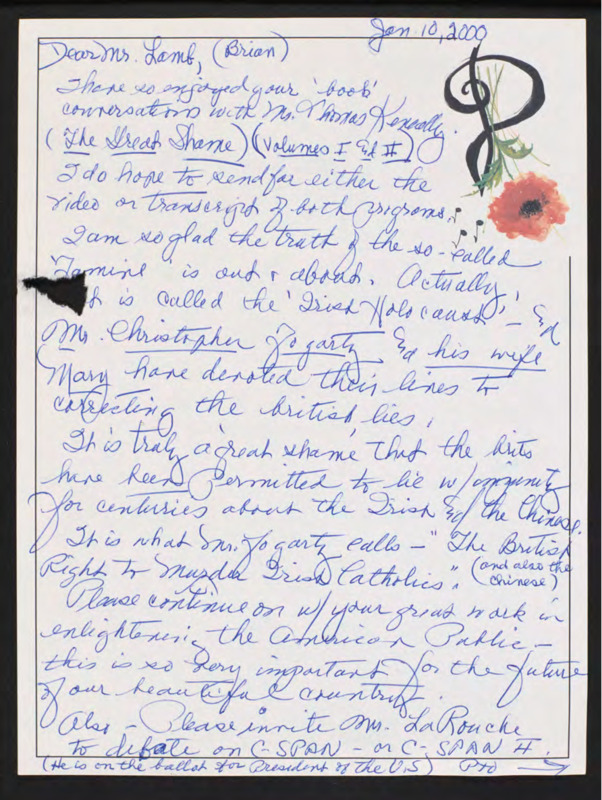 Jan. 10, 2000
Dear Mr. Lamb, (Brian)
I have so enjoyed your 'book'
conversations with Mr. Thomas Keneally.
(The Great Shame) (Volumes I & II)
I do hope to send for either the
video or transcript of both programs.
I am so glad the truth of the so-called
'Famine' is out & about. Actually
it is called the 'Irish Holocaust' - &
Mr. Christopher Fogarty & his wife
Mary have devoted their lives to
correcting the british lies.
It is truly a great shame that the brits
have been permitted to lie w/impunity
for centuries about the Irish & the Chinese.
It is what Mr. Fogarty calls - "The British
Right to Murder Irish Catholics". (and also the
Chinese)
Please continue on w/ your great work in
enlightening the American Public -
this is so very important for the future
of our beautiful country.
Also - Please invite Mr. LaRouche
to debate on C-SPAN - or C-SPAN II.
(He is on the ballot for President of the U.S) PTO